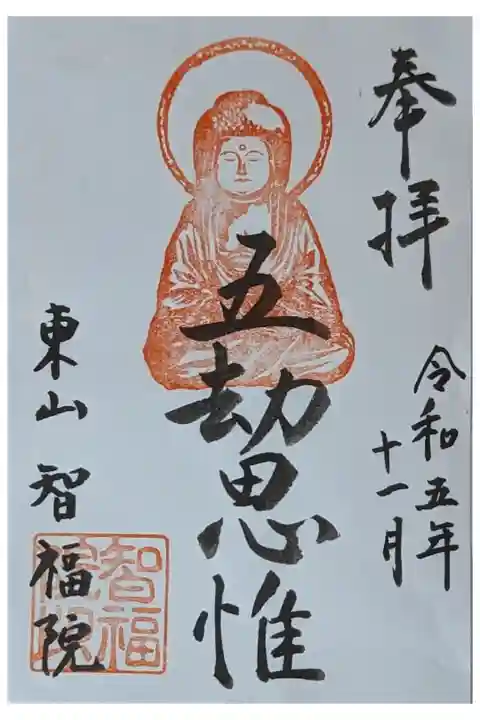 奉拝
令和五年
十一月
五劫思惟
東山 智福院
智福
院